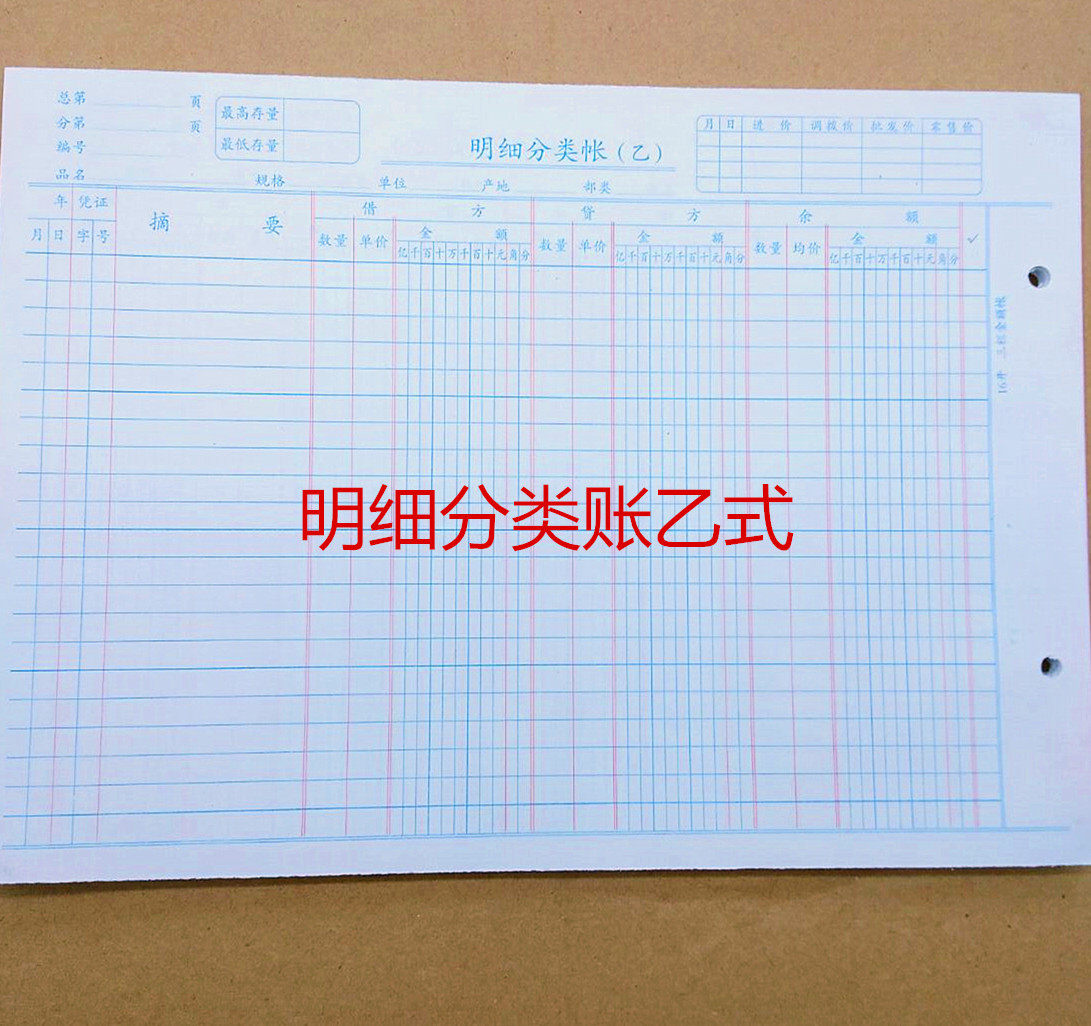 总第 页
分第 页
编号
品名 规格 单位 产地 部类
最高存量
最低存量
明细分类帐(乙)
月 日 进价 调拨价 批发价 零售价
年 凭证 摘要 借方 贷方 余额 ✓
月 日 字 号 数量 单价 金额 数量 单价 金额 数量 均价 金额
亿千百十万千百十元角分 亿千百十万千百十元角分 亿千百十万千百十元角分
16开 三栏金额帐
明细分类账乙式